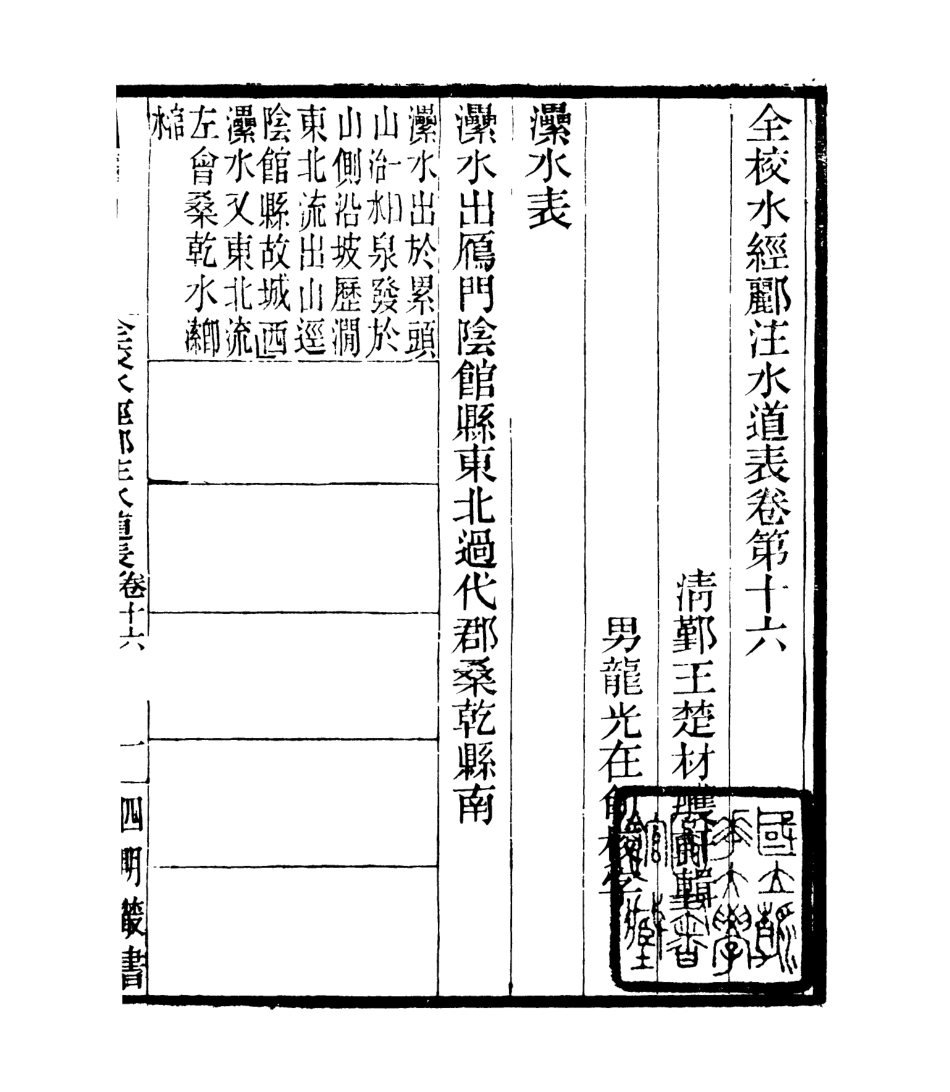 全校水經酈注水道表卷第十六
清鄞王楚材
男龍光在
㶟水表
㶟水出鴈門陰館縣東北過代郡桑乾縣南
㶟水出於累頭
山一曰治水泉發於
山側沿坡歷澗
東北流出山逕
陰館縣故城西
㶟水又東北流
左會桑乾水即溹
涫水
全校水經酈注水道表卷十六 一 四明叢書